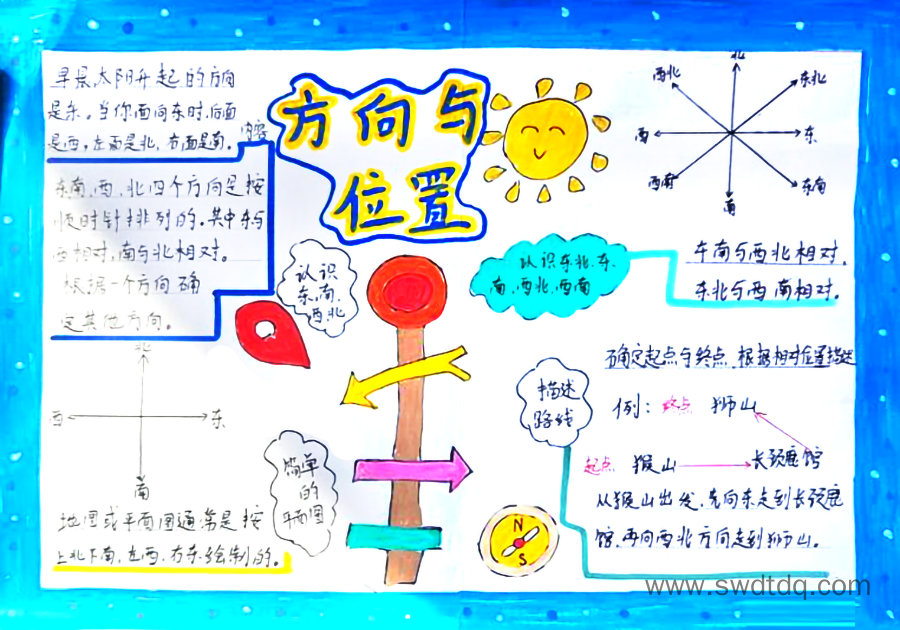 方向与
位置
早晨,太阳升起的方向
是东。当你面向东时,后面
是西,左面是北,右面是南。
内容
东南、西、北四个方向是按
顺时针排列的。其中东与
西相对,南与北相对。
根据一个方向确
定其他方向。
认识
东、南、
西北
北
西
东
南
简单
的
平面图
地图或平面图通常是按
上北下南,左西、右东绘制的。
北
西北
东北
西
东
西南
东南
南
认识东北、东
南、西北、西南
东南与西北相对.
东北与西南相对.
描述
路线
确定起点与终点,根据相对位置描述
例: 终点 狮山
起点 猴山 长颈鹿馆
从猴山出发,先向东走到长颈鹿
馆,再向西北方向走到狮山。
N
S
www.swdtdq.com